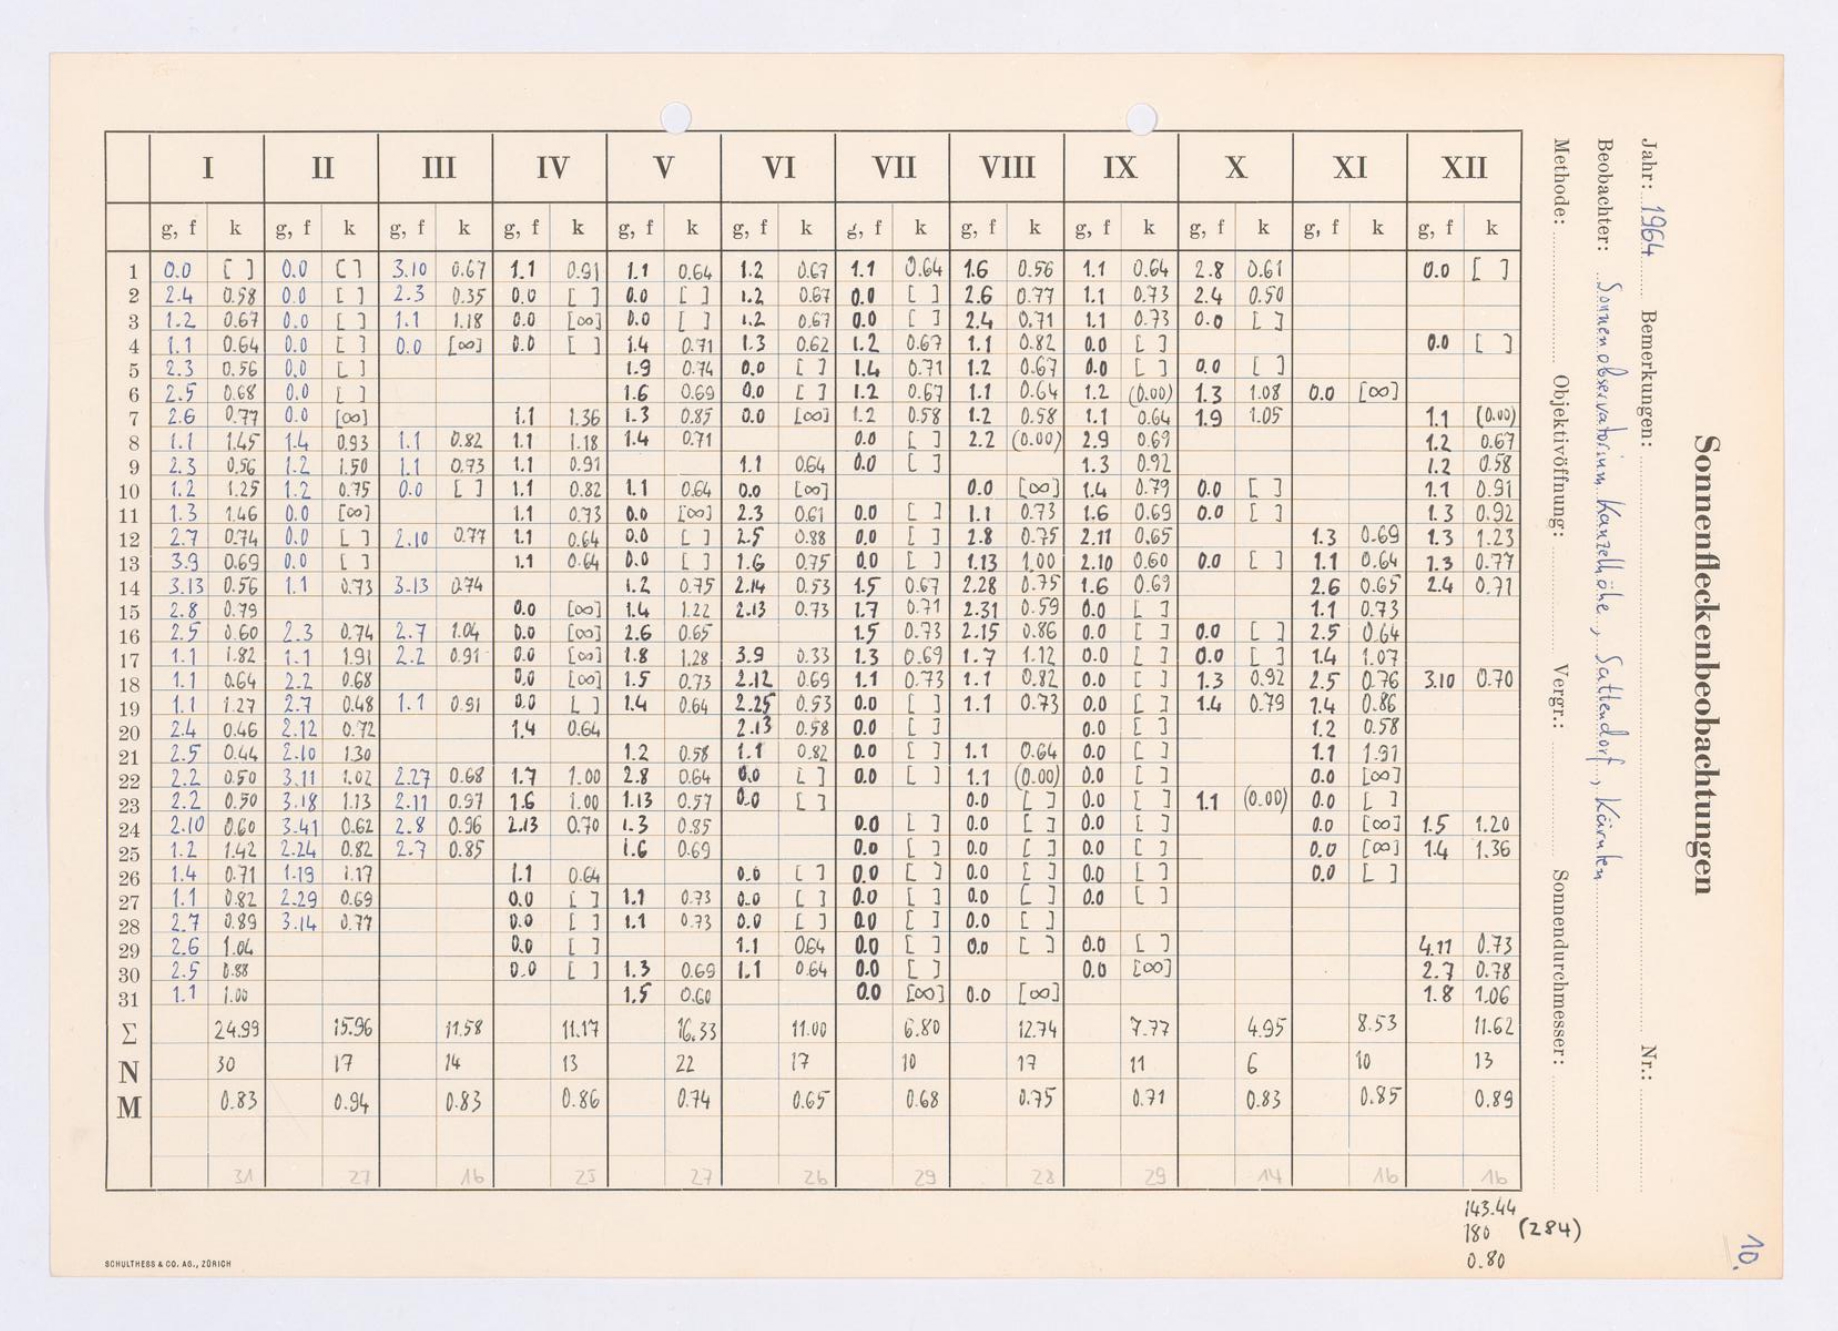 Sonnenfleckenbeobachtungen
Jahr: 1964 Bemerkungen: Nr.:
Beobachter: Sonnenobservatorium Kanzelhöhe, Sattendorf, Kärnten
Methode: Objektivöffnung: Vergr.: Sonnendurchmesser:
I II III IV V VI VII VIII IX X XI XII
g, f k g, f k g, f k g, f k g, f k g, f k g, f k g, f k g, f k g, f k g, f k g, f k
1 0.0 [ ] 0.0 [ ] 3.10 0.67 1.1 0.91 1.1 0.64 1.2 0.67 1.1 0.64 1.6 0.56 1.1 0.64 2.8 0.61 0.0 [ ]
2 2.4 0.58 0.0 [ ] 2.3 0.35 0.0 [ ] 0.0 [ ] 1.2 0.67 0.0 [ ] 2.6 0.77 1.1 0.73 2.4 0.50
3 1.2 0.67 0.0 [ ] 1.1 1.18 0.0 [∞] 0.0 [ ] 1.2 0.67 0.0 [ ] 2.4 0.71 1.1 0.73 0.0 [ ]
4 1.1 0.64 0.0 [ ] 0.0 [∞] 0.0 [ ] 1.4 0.71 1.3 0.62 1.2 0.67 1.1 0.82 0.0 [ ] 0.0 [ ]
5 2.3 0.56 0.0 [ ] 1.9 0.74 0.0 [ ] 1.4 0.71 1.2 0.67 0.0 [ ] 0.0 [ ]
6 2.5 0.68 0.0 [ ] 1.6 0.69 0.0 [ ] 1.2 0.67 1.1 0.64 1.2 (0.00) 1.3 1.08 0.0 [∞]
7 2.6 0.77 0.0 [∞] 1.1 1.36 1.3 0.85 0.0 [∞] 1.2 0.58 1.2 0.58 1.1 0.64 1.9 1.05 1.1 (0.00)
8 1.1 1.45 1.4 0.93 1.1 0.82 1.1 1.18 1.4 0.71 0.0 [ ] 2.2 (0.00) 2.9 0.69 1.2 0.67
9 2.3 0.56 1.2 1.50 1.1 0.73 1.1 0.91 1.1 0.64 0.0 [ ] 1.3 0.92 1.2 0.58
10 1.2 1.25 1.2 0.75 0.0 [ ] 1.1 0.82 1.1 0.64 0.0 [∞] 0.0 [∞] 1.4 0.79 0.0 [ ] 1.1 0.91
11 1.3 1.46 0.0 [∞] 1.1 0.73 0.0 [∞] 2.3 0.61 0.0 [ ] 1.1 0.73 1.6 0.69 0.0 [ ] 1.3 0.92
12 2.7 0.74 0.0 [ ] 2.10 0.77 1.1 0.64 0.0 [ ] 2.5 0.88 0.0 [ ] 2.8 0.75 2.11 0.65 1.3 0.69 1.3 1.23
13 3.9 0.69 0.0 [ ] 1.1 0.64 0.0 [ ] 1.6 0.75 0.0 [ ] 1.13 1.00 2.10 0.60 0.0 [ ] 1.1 0.64 1.3 0.77
14 3.13 0.56 1.1 0.73 3.13 0.74 1.2 0.75 2.14 0.53 1.5 0.67 2.28 0.75 1.6 0.69 2.6 0.65 2.4 0.71
15 2.8 0.79 0.0 [∞] 1.4 1.22 2.13 0.73 1.7 0.71 2.31 0.59 0.0 [ ] 1.1 0.73
16 2.5 0.60 2.3 0.74 2.7 1.04 0.0 [∞] 2.6 0.65 1.5 0.73 2.15 0.86 0.0 [ ] 0.0 [ ] 2.5 0.64
17 1.1 1.82 1.1 1.91 2.2 0.91 0.0 [∞] 1.8 1.28 3.9 0.33 1.3 0.69 1.7 1.12 0.0 [ ] 0.0 [ ] 1.4 1.07
18 1.1 0.64 2.2 0.68 0.0 [∞] 1.5 0.73 2.12 0.69 1.1 0.73 1.1 0.82 0.0 [ ] 1.3 0.92 2.5 0.76 3.10 0.70
19 1.1 1.27 2.7 0.48 1.1 0.91 0.0 [ ] 1.4 0.64 2.25 0.53 0.0 [ ] 1.1 0.73 0.0 [ ] 1.4 0.79 1.4 0.86
20 2.4 0.46 2.12 0.72 1.4 0.64 2.13 0.58 0.0 [ ] 0.0 [ ] 1.2 0.58
21 2.5 0.44 2.10 1.30 1.2 0.58 1.1 0.82 0.0 [ ] 1.1 0.64 0.0 [ ] 1.1 1.91
22 2.2 0.50 3.11 1.02 2.27 0.68 1.7 1.00 2.8 0.64 0.0 [ ] 0.0 [ ] 1.1 (0.00) 0.0 [ ] 0.0 [∞]
23 2.2 0.50 3.18 1.13 2.11 0.97 1.6 1.00 1.13 0.57 0.0 [ ] 0.0 [ ] 0.0 [ ] 1.1 (0.00) 0.0 [ ]
24 2.10 0.60 3.41 0.62 2.8 0.96 2.13 0.70 1.3 0.85 0.0 [ ] 0.0 [ ] 0.0 [ ] 0.0 [∞] 1.5 1.20
25 1.2 1.42 2.24 0.82 2.7 0.85 1.6 0.69 0.0 [ ] 0.0 [ ] 0.0 [ ] 0.0 [∞] 1.4 1.36
26 1.4 0.71 1.19 1.17 1.1 0.64 0.0 [ ] 0.0 [ ] 0.0 [ ] 0.0 [ ] 0.0 [ ]
27 1.1 0.82 2.29 0.69 0.0 [ ] 1.1 0.73 0.0 [ ] 0.0 [ ] 0.0 [ ] 0.0 [ ]
28 2.7 0.89 3.14 0.77 0.0 [ ] 1.1 0.73 0.0 [ ] 0.0 [ ] 0.0 [ ]
29 2.6 1.04 0.0 [ ] 1.1 0.64 0.0 [ ] 0.0 [ ] 0.0 [ ] 4.11 0.73
30 2.5 0.88 0.0 [ ] 1.3 0.69 1.1 0.64 0.0 [ ] 0.0 [∞] 2.7 0.78
31 1.1 1.00 1.5 0.60 0.0 [∞] 0.0 [∞] 1.8 1.06
Σ 24.99 15.96 11.58 11.17 16.33 11.00 6.80 12.74 7.77 4.95 8.53 11.62
N 30 17 14 13 22 17 10 17 11 6 10 13
M 0.83 0.94 0.83 0.86 0.74 0.65 0.68 0.75 0.71 0.83 0.85 0.89
31 27 16 25 27 26 29 28 29 14 16 16
143.44
180 (284)
0.80
10.
SCHULTHESS & CO. AG., ZÜRICH